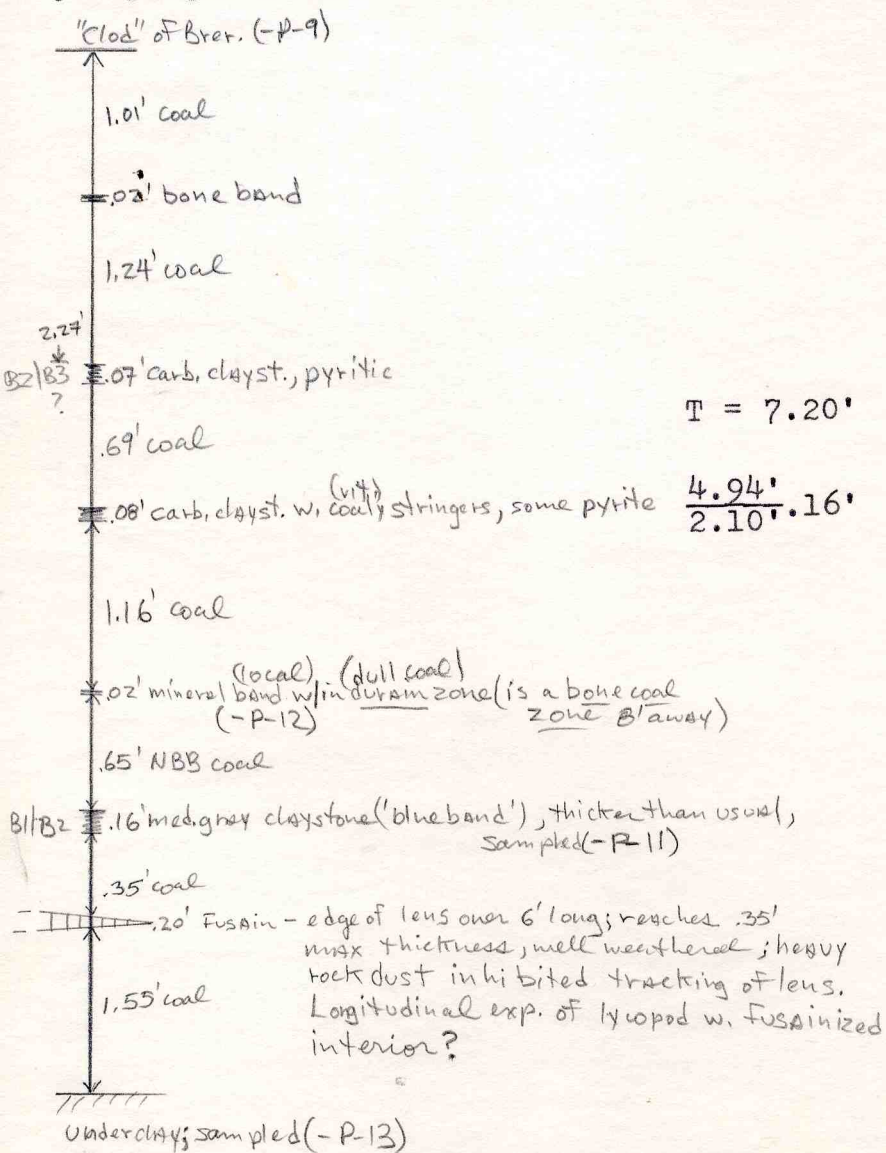 "Clod" of Brer. (-P-9)
1.01' coal
.02' bone band
1.24' coal
2.27'
B2/B3 .07' carb. clayst., pyritic
?
T = 7.20'
.69' coal
(vit.)
.08' carb. clayst. w. coaly stringers, some pyrite
4.94'
2.10' .16'
1.16' coal
(local) (dull coal)
.02' mineral band w/in durain zone (is a bone coal
(-P-12) zone 8' away)
.65' NBB coal
B1/B2 .16' med. gray claystone ('blue band'), thicker than usual,
sampled (-P-11)
.35' coal
.20' Fusain - edge of lens over 6' long; reaches .35'
max thickness, well weathered; heavy
rock dust inhibited tracking of lens.
1.55' coal
Longitudinal exp. of lycopod w. fusainized
interior?
Underclay; sampled (-P-13)